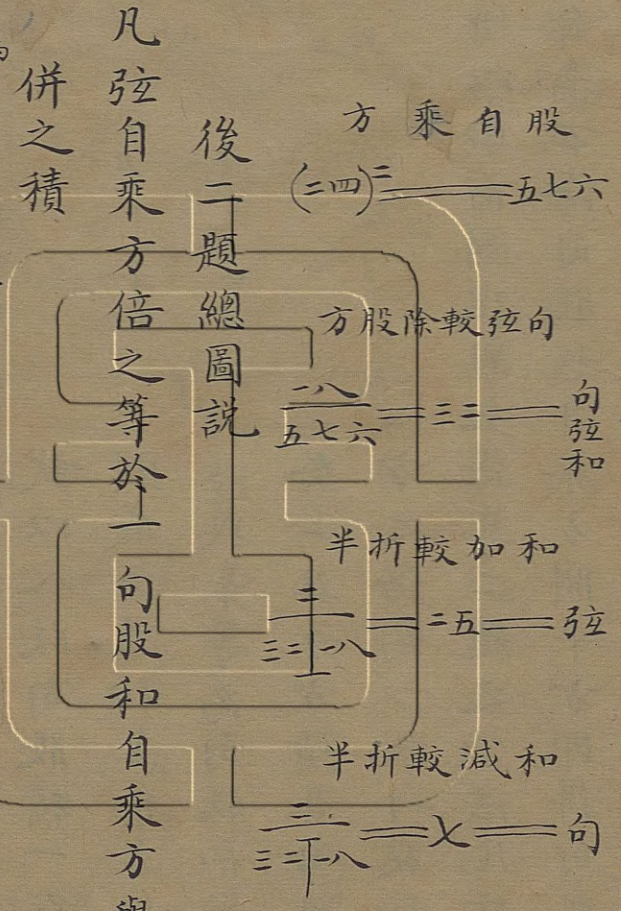 股自乘方
(二四)二＝五七六
句弦較除股方
一八
五七六＝三二＝句弦和
和加較折半
二
三二⊥一八＝二五＝弦
和減較折半
二
三二丅一八＝七＝句
後二題總圖說
凡弦自乘方倍之等於一句股和自乘方與
併之積